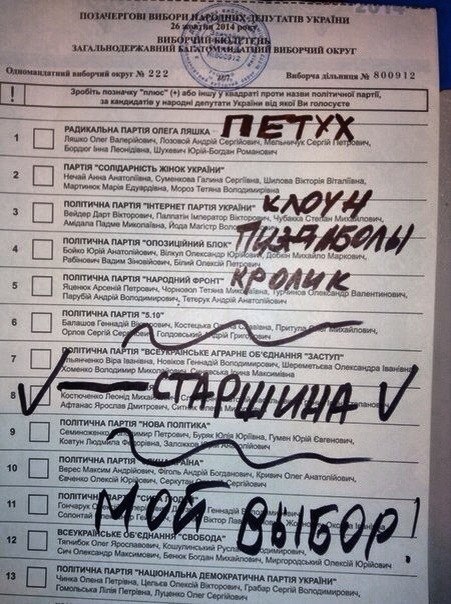 2014
ПОЗАЧЕРГОВІ ВИБОРИ НАРОДНИХ ДЕПУТАТІВ УКРАЇНИ
26 жовтня 2014 року
ВИБОРЧИЙ БЮЛЕТЕНЬ
ЗАГАЛЬНОДЕРЖАВНИЙ БАГАТОМАНДАТНИЙ ВИБОРЧИЙ ОКРУГ
Одномандатний виборчий округ № 222
Виборча дільниця № 800912
! Зробіть позначку "плюс" (+) або іншу у квадраті проти назви політичної партії,
за кандидатів у народні депутати України від якої Ви голосуєте
1 РАДИКАЛЬНА ПАРТІЯ ОЛЕГА ЛЯШКА ПЕТУХ
Ляшко Олег Валерійович, Лозовой Андрій Сергійович, Мельничук Сергій Петрович,
Бордюг Інна Леонідівна, Шухевич Юрій-Богдан Романович
2 ПАРТІЯ "СОЛІДАРНІСТЬ ЖІНОК УКРАЇНИ"
Нечай Анна Анатоліївна, Суменкова Галина Сергіївна, Шилова Вікторія Віталіївна,
Мартинюк Марія Едуардівна, Мороз Тетяна Володимирівна
3 ПОЛІТИЧНА ПАРТІЯ "ІНТЕРНЕТ ПАРТІЯ УКРАЇНИ" КЛОУН
Вейдер Дарт Вікторович, Палпатін Імператор Вікторович, Чубакка Степан Михайлович,
Амідала Падме Миколаївна, Йода Магістр
4 ПОЛІТИЧНА ПАРТІЯ "ОПОЗИЦІЙНИЙ БЛОК" ПИЗДАБОЛЫ
Бойко Юрій Анатолійович, Вілкул Олександр Юрійович, Добкін Михайло Маркович,
Рабінович Вадим Зіновійович, Білий Олексій Петрович
5 ПОЛІТИЧНА ПАРТІЯ "НАРОДНИЙ ФРОНТ" КРОЛИК
Яценюк Арсеній Петрович, Чорновол Тетяна Миколаївна, Турчинов Олександр Валентинович,
Парубій Андрій Володимирович, Тетерук Андрій Анатолійович
6 ПОЛІТИЧНА ПАРТІЯ "5.10"
Балашов Геннадій Вікторович, Костецька Михайлович,
Орлов Сергій Голдовський Андрій
7 ПОЛІТИЧНА ПАРТІЯ "ВСЕУКРАЇНСЬКЕ АГРАРНЕ ОБ'ЄДНАННЯ "ЗАСТУП"
Ульянченко Віра Іванівна, Новіков Геннадій Володимирович, Шереметьєва Олександра Іванівна,
Хоменко Володимир Максимівна
8 СТАРШИНА
Костюченко Леонід Михайлович
Афтанас Ярослав Дмитрович,
9 ПОЛІТИЧНА ПАРТІЯ "НОВА ПОЛІТИКА"
Семиноженко Володимир Петрович, Буряк Юлія Юріївна, Гумен Юрій Євгенович,
Ковтун Людмила Федорівна,
10 ПОЛІТИЧНА ПАРТІЯ
Верес Максим Андрійович, Фіголь Андрій Богданович, Кривич Олег Анатолійович,
Євченко Олексій Юрійович,
11 ПОЛІТИЧНА МОЙ ВЫБОР!
Гончарук
12 ВСЕУКРАЇНСЬКЕ ОБ'ЄДНАННЯ "СВОБОДА"
Тягнибок Олег Ярославович, Кошулинський Руслан
Сич Олександр Максимович, Бенюк Богдан Михайлович, Миргородський Олексій Юрійович
13 ПОЛІТИЧНА ПАРТІЯ "НАЦІОНАЛЬНА ДЕМОКРАТИЧНА ПАРТІЯ УКРАЇНИ"
Чинка Олена Петрівна, Цельєв Олексій Вікторович, Грабар Сергій Володимирович,
Гомольська Лілія Петрівна, Луценко Олег Сергійович